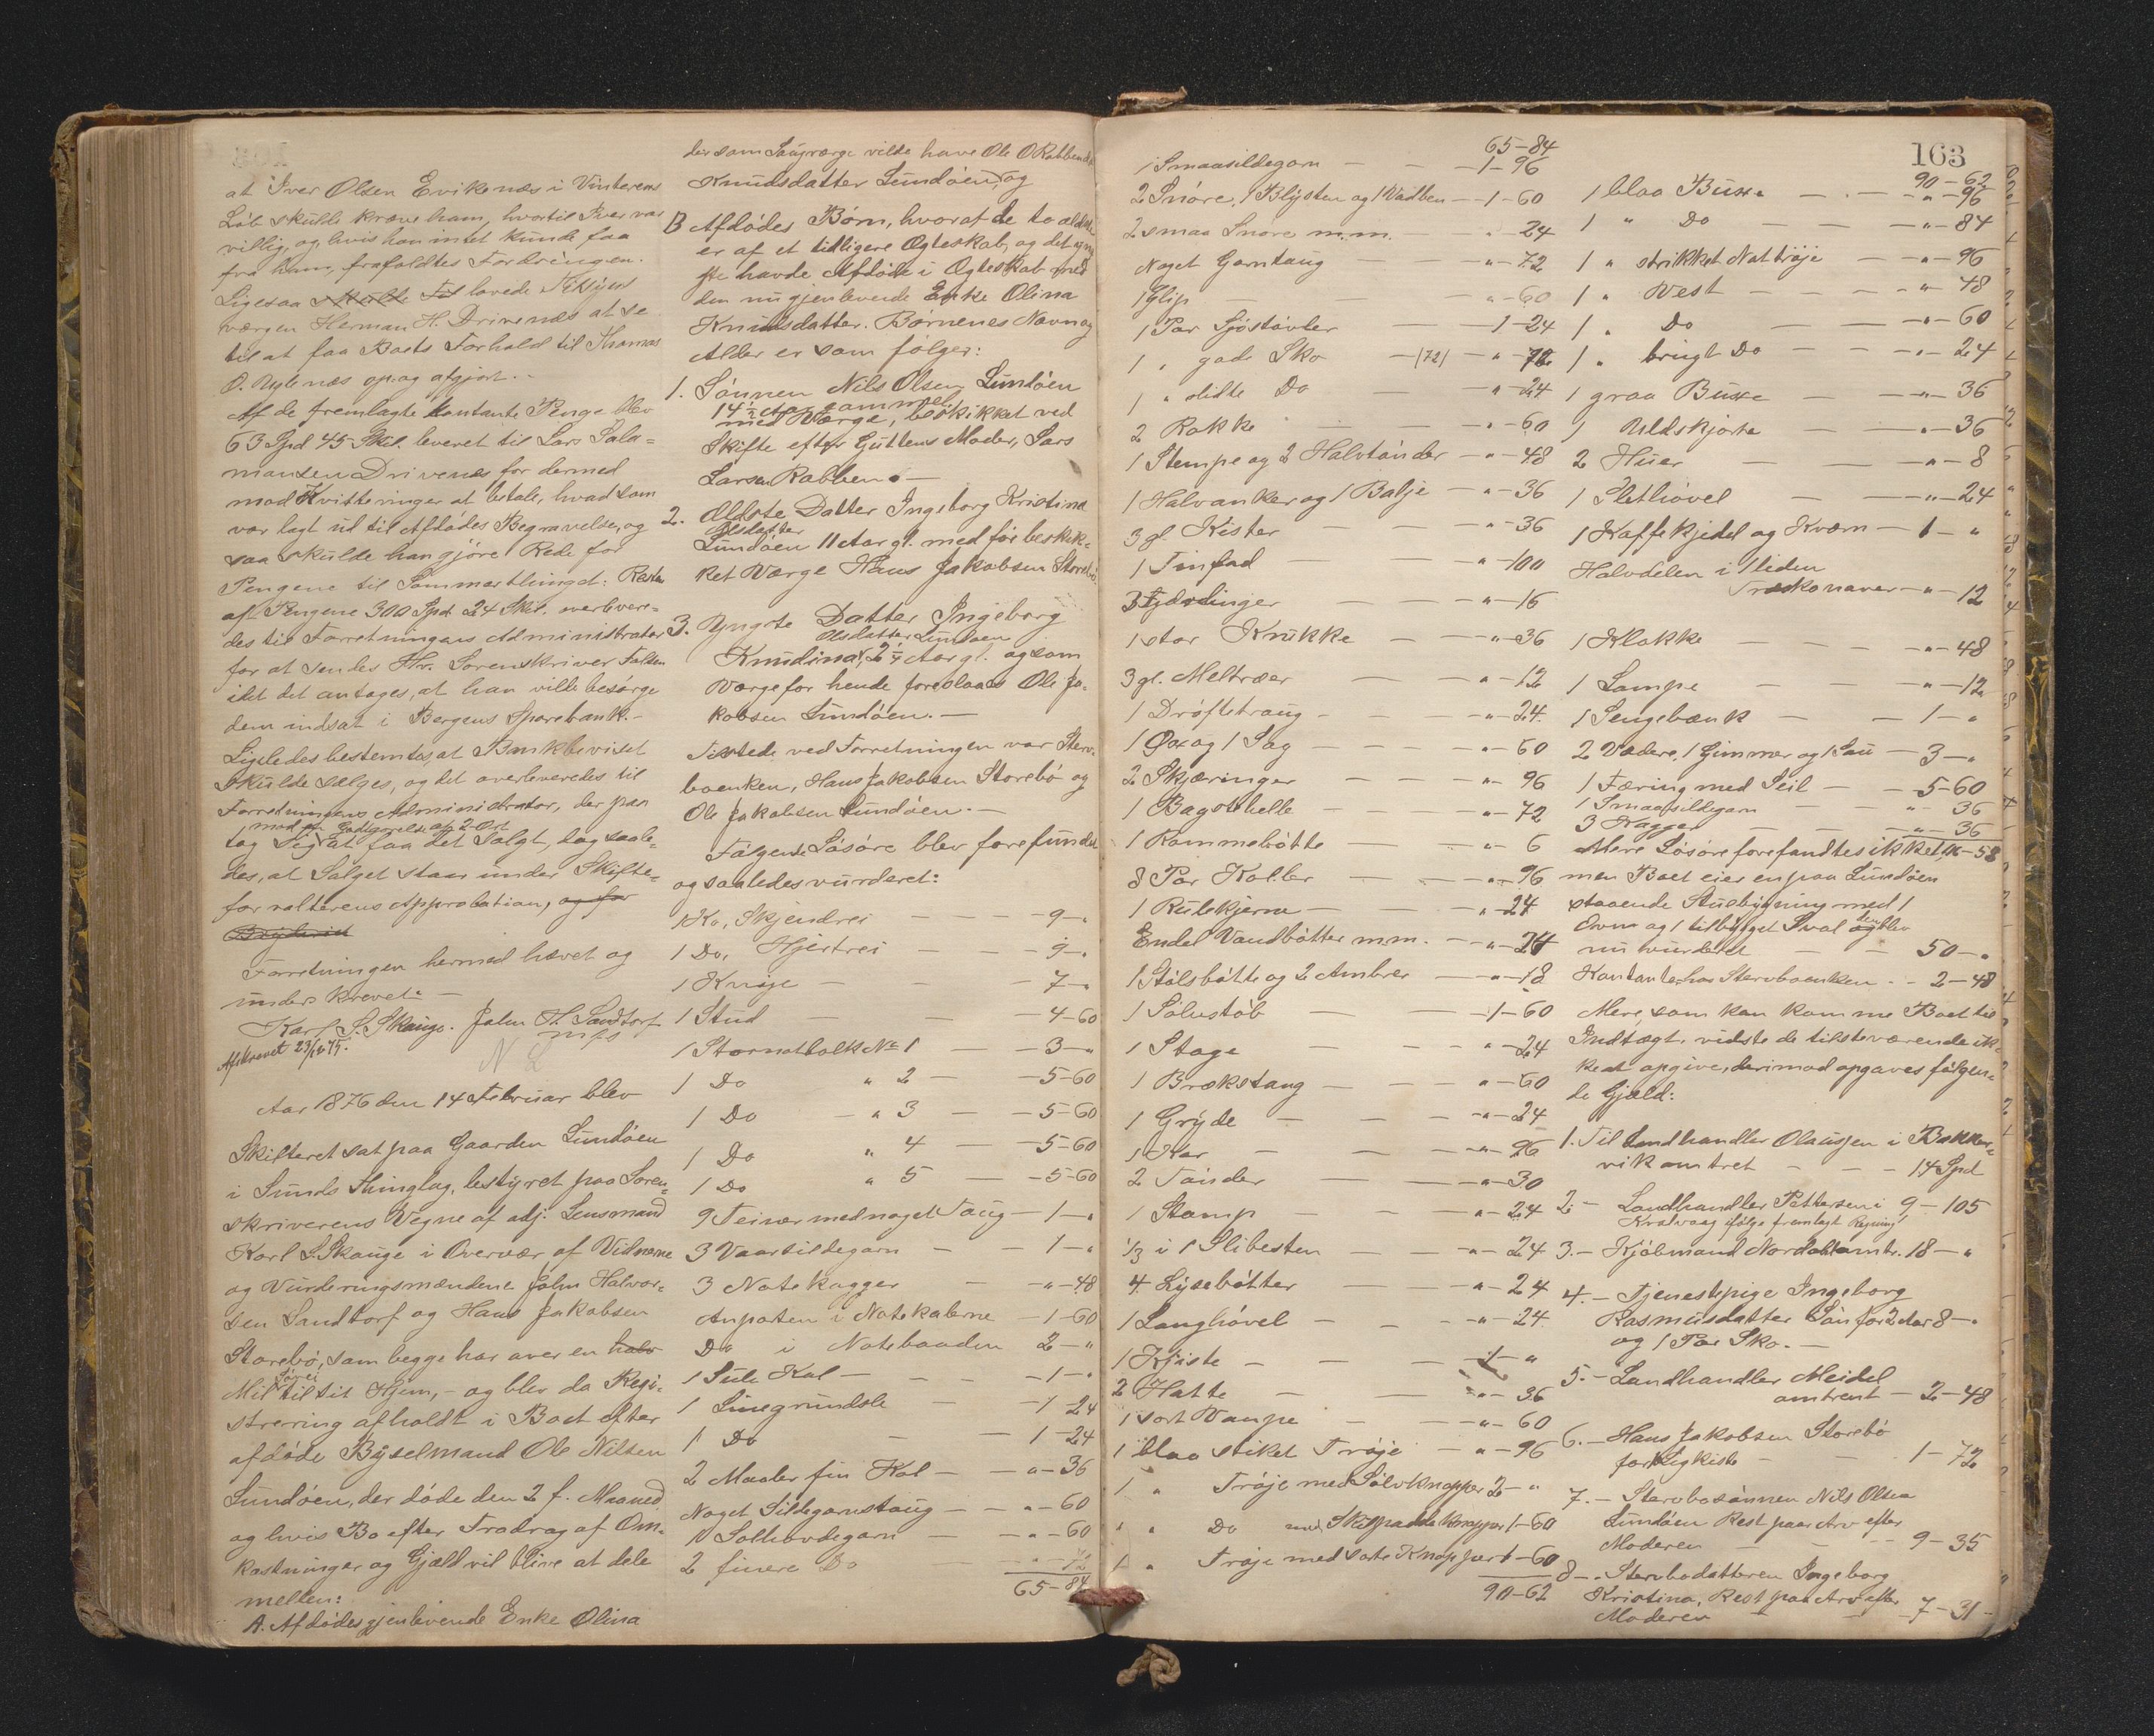 at Iver Olsen Evikenæs i Vinterens
Løb skulde kræve ham, hvortil Iver var
villig, og hvis han intet kunde faa
fra ham, frafaldtes Fordringen.
Ligesaa skulde Til lovede Tilsyns
værgen Herman H. Drivenæs at se
til at faa Boets Forhold til Thomas
O. op og afgjort.
Af de fremlagte kontante Penge blev
63 Spd 45 Skil. leveret til Lars Sala=
monsen Drivenæs for dermed
mod Kvitteringer at betale, hvad som
var lagt ud til Afdødes Begravelse, og
saa skulde han gjøre Rede for
Pengene til Sommerthinget. Resten
af Pengene 300 Spd 24 Skil. overlevere=
des til Forretningens Administrator
for at sendes Hr. Sorenskriver Falsen
idet det antages, at han vilde besørge
dem indsat i Bergens Sparebank.-
Ligeledes bestemtes, at Bankbeviset
skulde sælges, og det overleveredes til
Forretningens Administrator, der paa
mod en Godtgjørelse af 2 Ort
tog sig at faa det Solgt, dog saale=
des, at Salget staar under Skifte=
forvalterens Approbation, og for
Forretningen hermed hævet og
underskrevet. -
Karl S. Skauge. John H. Sandtorf
mfs
Afskrevet 23/12 75.
N 2
Aar 1876 den 14 Februar blev
Skifteret sat paa Gaarden Lundøen
i Sunds Thinglag, bestyret paa Soren=
skriverens Vegne af adj. Lensmand
Karl S. Skauge i Overvær af Vidnerne
og Vurderingsmændene John Halvor=
sen Sandtorf og Hans Jakobsen
Storebø, som begge har over en halv
Mil Søvei til sit Hjem, - og blev da Regi=
strering afholdt i Boet efter
afdøde Bygselmand Ole Nilsen
Lundøen, der døde den 2 f. Maaned,
og hvis Bo efter Fradrag af Om=
kostninger og Gjæld vil blive at dele
mellem:
A. Afdødes gjenlevende Enke Olina
der som Laugværge vilde have Ole O Rabben
Knudsdatter Lundøen, og
B Afdødes Børn, hvoraf de to ældste
er af et tidligere Ægteskab, og det yng
ste havde Afdøde i Ægteskab med
den nu gjenlevende Enke Olina
Knudsdatter. Børnenes Navn og
Alder er som følger:
1. Sønnen Nils Olsen Lundøen
14 1/2 Aar gammel,
med Værge, beskikket ved
Skifte efter Guttens Moder, Lars
Larsen Rabben. -
2. Ældste Datter Ingeborg Kristina
Olsdatter
Lundøen 11 Aar gl. med før beskik=
ket Værge Hans Jakobsen Storebø
3. Yngste Datter Ingeborg
Olsdatter Lundøen
Knudina, 2 1/4 Aar gl. og som
Værge for hende foreslaaes Ole Ja=
kobsen Lundøen. -
Tilstede ved Forretningen var Sterv=
boenken, Hans Jakobsen Storebø og
Ole Jakobsen Lundøen. -
Følgende Løsøre blev forefundet
og saaledes vurderet:
1 Ko, Skjendrei - - - 9-"
1 Do, Hjertrei - - 9-"
1 Kvige - - 7-"
1 Stud - - 4-60
1 Stornotbolk No 1 - - 3-"
1 Do " 2 - - 5-60
1 Do - " 3 - - 5-60
1 Do " 4 - - 5-60
1 Do " 5 - - 5-60
9 Teiner med noget Taug - 1-"
3 Vaarsildegarn - - 1-"
3 Notekagger - - "-48
Anparten i Notekablerne - 1-60
Do i Notebaaden 2-"
1 Sule Kol - - - 1-"
1 Linegrundsle - - 1 24
1 Do - 1-24
2 Maaler fin Kol - - "-36
Noget Sildegarnstaug - - "-60
1 Solhovdegarn - - "-60
2 finere Do - "-72
65-84
163
65-84
1 Smaasildegarn - - 1-96
2 Snøre, 1 Blysten og 1 Vadben - 1-60
2 smaa Snøre m.m. - "-24
Noget Garntaug - - "-72
1 Glip - - "-60
1 Par Sjøstøvler - 1-24
1 " gode Sko - (72) - "-72
1 " slidte Do - - "-24
2 Rokke - - "-60
1 Stempe og 2 Halvtønder - "-48
1 Halvanker og 1 Balje - "-36
3 gl. Kister - - "-36
1 Tinfad - - "-100
3 Fjærdinger - - "-16
1 stor Krukke - - "-36
3 gl. Meltræer - - "-12
1 Drøftetraug - - - "-24
1 Øx og 1 Sag - - "-60
2 Skjæringer - - - "-96
1 Bagstehelle - - - "-72
1 Rømmebøtte - - "-6
8 Par Kalber - - "-96
1 Rulekjerne - - - "-24
Endel Vandbøtter m.m. - "-24
1 Stølsbøtte og 2 Ambrer - "-18
1 Solustøb - - 1-60
1 Stage - - "-24
1 Brækstang - - - "-60
1 Gryde - - - "-24
1 Kar - - - "-96
2 Tønder - - "-30
1 Stamp - - - "-24
1/3 i 1 Slibesten - - "-24
4 Lysebøtter - - "-24
1 Langhøvel - - - "-24
1 Kjiste - - - 1-"
2 Hatte - - "-36
1 sort Vampe - - "-60
1 blaa stiket Trøje - "-96
1 " Trøje med Sølvknapper 2-"
" " Do med Skilpadde knapper 1-60
1 " Trøje med sorte Knapper 1-60
90-62
90-62
1 blaa Buxe - - - "-96
1 " Do - - "-84
1 " strikket Nattrøje - "-96
1 " Vest - - - "-48
1 " Do - - "-60
1 " brugt Do - - "-24
1 graa Buxe - - "-36
1 Uldskjorte - - "-36
2 Huer - - "-8
1 Slethøvel - "-24
1 Kaffekjedel og Kværn - 1-"
Halvdelen i 1 liden
Træskonaver - "-12
1 Klokke - - "-48
1 Lampe - - "-12
1 Sengebænk - - 1-"
2 Vædere, 1 Gimmer og 1 Sau - 3-"
1 Færing med Seil - - 5-60
1 Smaasildegarn - "-36
3 Kagger - - "-36
Mere Løsøre forefandtes ikke,
men Boet eier en paa Lundøen
staaende Stuebygning med 1
Ovn og 1 tilbygget Sval og blev
nu vurderet - - 50-"
Kontante hos Stervboenken - - 2-48
Mere, som kan komme Boet til
Indtægt, vidste de tilstedeværende ik=
ke at opgive, derimod opgaves følgen=
de Gjæld:
1. Til Landhandler Olaussen i Bakke=
vik omtret - - - 14 Spd
2. - Landhandler Pettersen i 9-105
ifølge fremlagt Regning
3. - Kjøbmand Nordahl omtr. 18-"
4. - Tjenestepige Ingeborg
Rasmusdatter Løn for 2 Aar 8-"
og 1 Par Sko. -
5. - Landhandler Meidel
omtrent - 2-48
6. - Hans Jakobsen Storebø
for Ligkiste - - 1-72
7. - Stervbosønnen Nils Olsen
Lundøen Rest paa Arv efter
Moderen - - - 9-35
8 - Stervbodatteren Ingeborg
Kristina, Rest paa Arv efter
Moderen - 7-31